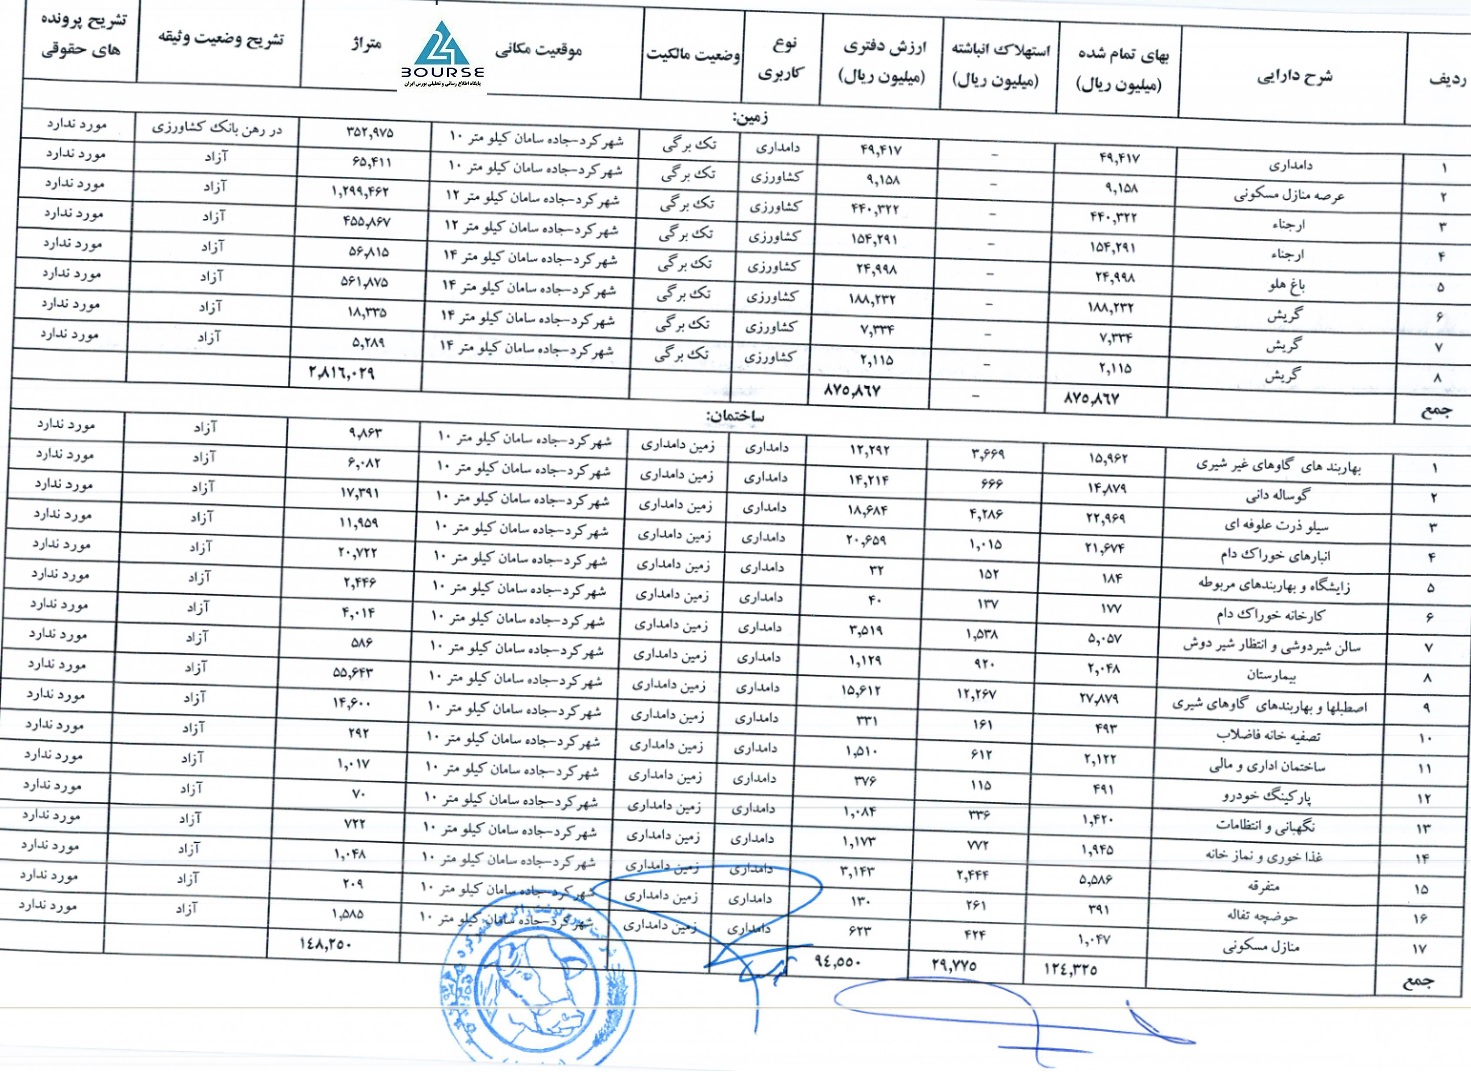 ردیف شرح دارایی بهای تمام شده (میلیون ریال) استهلاک انباشته (میلیون ریال) ارزش دفتری (میلیون ریال) نوع کاربری وضعیت مالکیت موقعیت مکانی متراژ تشریح وضعیت وثیقه تشریح پرونده های حقوقی
24
BOURSE
پایگاه اطلاع رسانی و تحلیلی بورس ایران
زمین:
۱ دامداری ۴۹,۴۱۷ – ۴۹,۴۱۷ دامداری تک برگی شهرکرد-جاده سامان کیلو متر ۱۰ ۳۵۲,۹۷۵ در رهن بانک کشاورزی مورد ندارد
۲ عرصه منازل مسکونی ۹,۱۵۸ – ۹,۱۵۸ کشاورزی تک برگی شهرکرد-جاده سامان کیلو متر ۱۰ ۶۵,۴۱۱ آزاد مورد ندارد
۳ ارجناء ۴۴۰,۳۲۲ – ۴۴۰,۳۲۲ کشاورزی تک برگی شهرکرد-جاده سامان کیلو متر ۱۲ ۱,۲۹۹,۴۶۲ آزاد مورد ندارد
۴ ارجناء ۱۵۴,۲۹۱ – ۱۵۴,۲۹۱ کشاورزی تک برگی شهرکرد-جاده سامان کیلو متر ۱۲ ۴۵۵,۸۶۷ آزاد مورد ندارد
۵ باغ هلو ۲۴,۹۹۸ – ۲۴,۹۹۸ کشاورزی تک برگی شهرکرد-جاده سامان کیلو متر ۱۴ ۵۶,۸۱۵ آزاد مورد ندارد
۶ گریش ۱۸۸,۲۳۲ – ۱۸۸,۲۳۲ کشاورزی تک برگی شهرکرد-جاده سامان کیلو متر ۱۴ ۵۶۱,۸۷۵ آزاد مورد ندارد
۷ گریش ۷,۳۳۴ – ۷,۳۳۴ کشاورزی تک برگی شهرکرد-جاده سامان کیلو متر ۱۴ ۱۸,۳۳۵ آزاد مورد ندارد
۸ گریش ۲,۱۱۵ – ۲,۱۱۵ کشاورزی تک برگی شهرکرد-جاده سامان کیلو متر ۱۴ ۵,۲۸۹ آزاد مورد ندارد
جمع ۸۷۵,۸۶۷ – ۸۷۵,۸۶۷ ۲,۸۱۶,۰۲۹
ساختمان:
۱ بهاربند های گاوهای غیر شیری ۱۵,۹۶۲ ۳,۶۶۹ ۱۲,۲۹۲ دامداری زمین دامداری شهرکرد-جاده سامان کیلو متر ۱۰ ۹,۸۶۳ آزاد مورد ندارد
۲ گوساله دانی ۱۴,۸۷۹ ۶۶۶ ۱۴,۲۱۴ دامداری زمین دامداری شهرکرد-جاده سامان کیلو متر ۱۰ ۶,۰۸۲ آزاد مورد ندارد
۳ سیلو ذرت علوفه ای ۲۲,۹۶۹ ۴,۲۸۶ ۱۸,۶۸۴ دامداری زمین دامداری شهرکرد-جاده سامان کیلو متر ۱۰ ۱۷,۳۹۱ آزاد مورد ندارد
۴ انبارهای خوراک دام ۲۱,۶۷۴ ۱,۰۱۵ ۲۰,۶۵۹ دامداری زمین دامداری شهرکرد-جاده سامان کیلو متر ۱۰ ۱۱,۹۵۹ آزاد مورد ندارد
۵ زایشگاه و بهاربندهای مربوطه ۱۸۴ ۱۵۲ ۳۲ دامداری زمین دامداری شهرکرد-جاده سامان کیلو متر ۱۰ ۲۰,۷۲۲ آزاد مورد ندارد
۶ کارخانه خوراک دام ۱۷۷ ۱۳۷ ۴۰ دامداری زمین دامداری شهرکرد-جاده سامان کیلو متر ۱۰ ۲,۴۴۶ آزاد مورد ندارد
۷ سالن شیردوشی و انتظار شیر دوش ۵,۰۵۷ ۱,۵۳۸ ۳,۵۱۹ دامداری زمین دامداری شهرکرد-جاده سامان کیلو متر ۱۰ ۴,۰۱۴ آزاد مورد ندارد
۸ بیمارستان ۲,۰۴۸ ۹۲۰ ۱,۱۲۹ دامداری زمین دامداری شهرکرد-جاده سامان کیلو متر ۱۰ ۵۸۶ آزاد مورد ندارد
۹ اصطبلها و بهاربندهای گاوهای شیری ۲۷,۸۷۹ ۱۲,۲۶۷ ۱۵,۶۱۲ دامداری زمین دامداری شهرکرد-جاده سامان کیلو متر ۱۰ ۵۵,۶۴۳ آزاد مورد ندارد
۱۰ تصفیه خانه فاضلاب ۴۹۳ ۱۶۱ ۳۳۱ دامداری زمین دامداری شهرکرد-جاده سامان کیلو متر ۱۰ ۱۴,۶۰۰ آزاد مورد ندارد
۱۱ ساختمان اداری و مالی ۲,۱۲۲ ۶۱۲ ۱,۵۱۰ دامداری زمین دامداری شهرکرد-جاده سامان کیلو متر ۱۰ ۲۹۲ آزاد مورد ندارد
۱۲ پارکینگ خودرو ۴۹۱ ۱۱۵ ۳۷۶ دامداری زمین دامداری شهرکرد-جاده سامان کیلو متر ۱۰ ۱,۰۱۷ آزاد مورد ندارد
۱۳ نگهبانی و انتظامات ۱,۴۲۰ ۳۳۶ ۱,۰۸۴ دامداری زمین دامداری شهرکرد-جاده سامان کیلو متر ۱۰ ۷۰ آزاد مورد ندارد
۱۴ غذا خوری و نماز خانه ۱,۹۴۵ ۷۷۲ ۱,۱۷۳ دامداری زمین دامداری شهرکرد-جاده سامان کیلو متر ۱۰ ۷۲۲ آزاد مورد ندارد
۱۵ متفرقه ۵,۵۸۶ ۲,۴۴۴ ۳,۱۴۳ دامداری زمین دامداری شهرکرد-جاده سامان کیلو متر ۱۰ ۱,۰۴۸ آزاد مورد ندارد
۱۶ حوضچه تفاله ۳۹۱ ۲۶۱ ۱۳۰ دامداری زمین دامداری شهرکرد-جاده سامان کیلو متر ۱۰ ۲۰۹ آزاد مورد ندارد
۱۷ منازل مسکونی ۱,۰۴۷ ۴۲۴ ۶۲۳ دامداری زمین دامداری شهرکرد-جاده سامان کیلو متر ۱۰ ۱,۵۸۵ آزاد مورد ندارد
جمع ۱۲٤,۳۲۵ ۲۹,۷۷۵ ۹٤,۵۵۰ ۱٤۸,۲۵۰